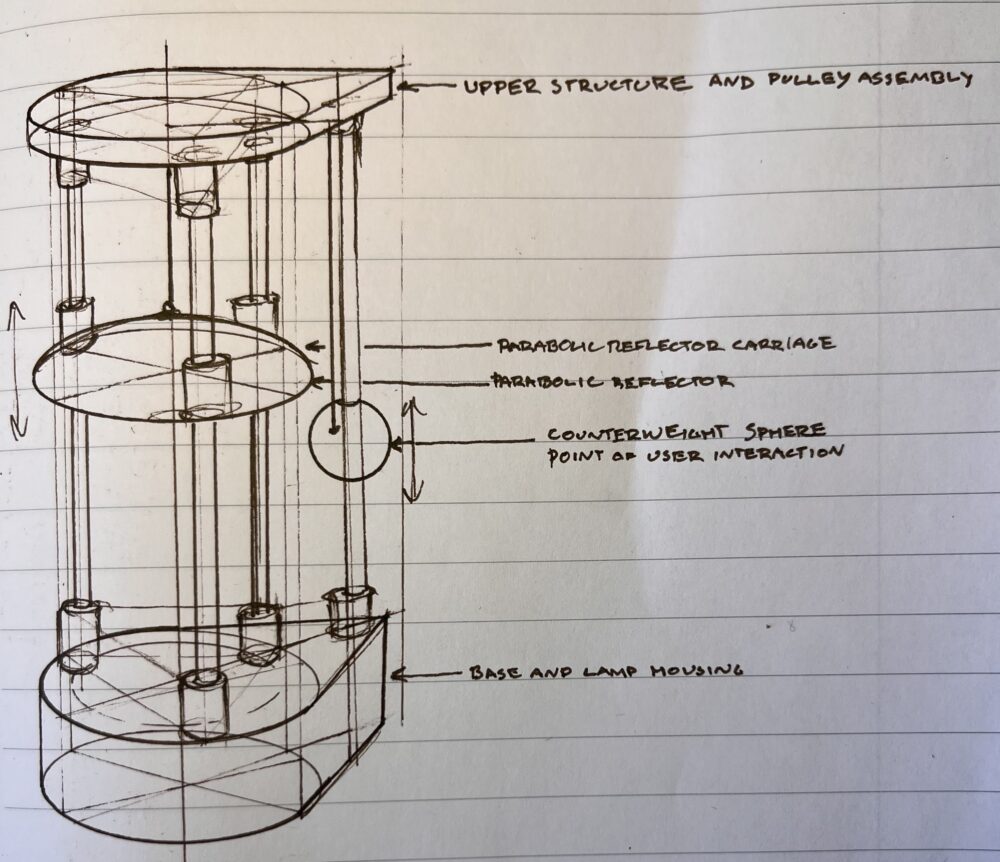 UPPER STRUCTURE AND PULLEY ASSEMBLY
PARABOLIC REFLECTOR CARRIAGE
PARABOLIC REFLECTOR
COUNTERWEIGHT SPHERE
POINT OF USER INTERACTION
BASE AND LAMP HOUSING